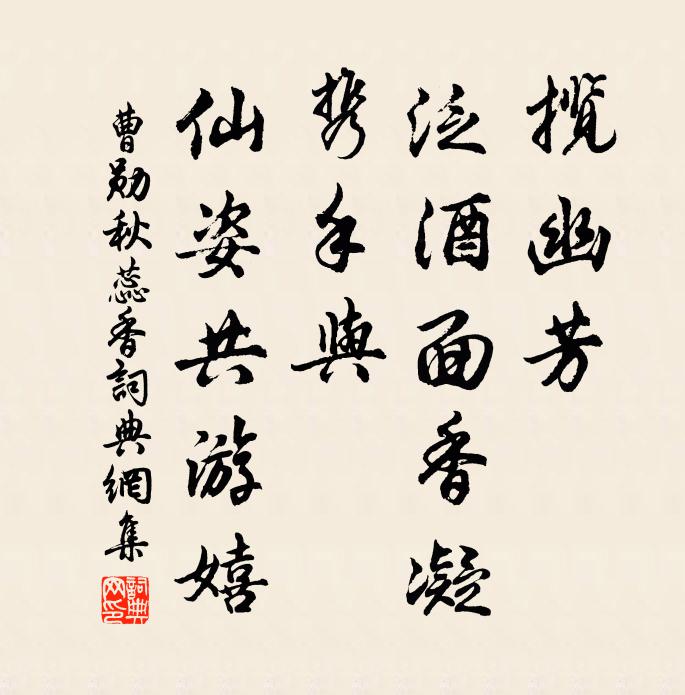 揽幽芳
泛酒面香凝
携手與
仙姿共游嬉
曹勛秋蕊香詞典網集
詞典網印